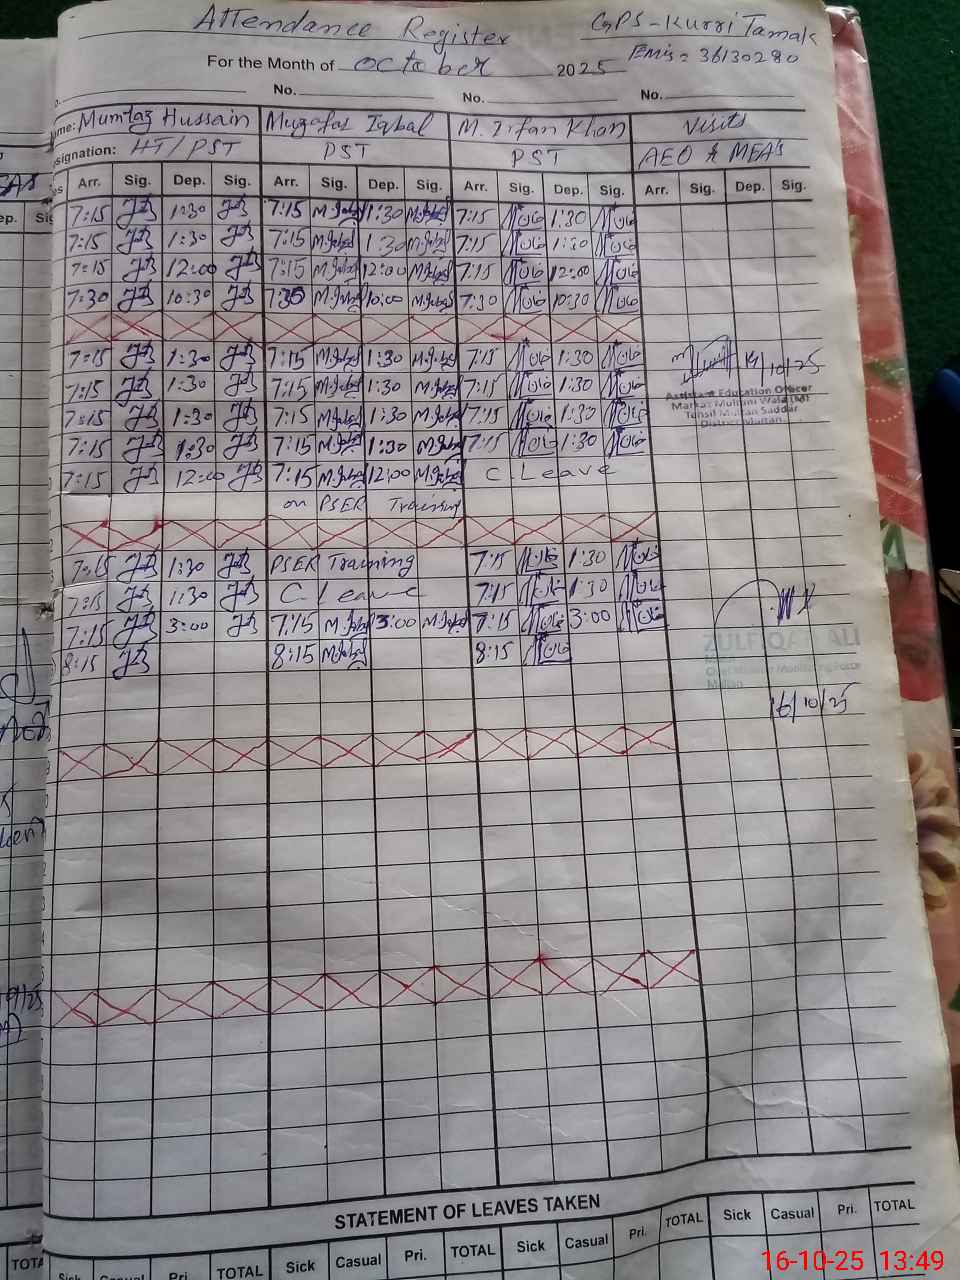 Attendance Register GPS-Kurri Tamak
For the Month of October 2025 Emis = 36130280
No. No. No.
Name: Mumtaz Hussain Muzafar Iqbal M. Irfan Khan Visits
Designation: HT/PST PST PST AEO & MEA's
Arr. Sig. Dep. Sig. Arr. Sig. Dep. Sig. Arr. Sig. Dep. Sig. Arr. Sig. Dep. Sig.
7:15 1:30 7:15 M.Iqbal 1:30 M.Iqbal 7:15 1:30
7:15 1:30 7:15 M.Iqbal 1:30 M.Iqbal 7:15 1:30
7:15 12:00 7:15 M.Iqbal 12:00 M.Iqbal 7:15 12:00
7:30 10:30 7:30 M.Iqbal 10:00 M.Iqbal 7:30 10:30
7:15 1:30 7:15 M.Iqbal 1:30 M.Iqbal 7:15 1:30 14/10/25
7:15 1:30 7:15 M.Iqbal 1:30 M.Iqbal 7:15 1:30 Assistant Education Officer
7:15 1:30 7:15 M.Iqbal 1:30 M.Iqbal 7:15 1:30 Markaz Multani Wala (M)
Tehsil Multan Saddar
District Multan.
7:15 1:30 7:15 M.Iqbal 1:30 M.Iqbal 7:15 1:30
7:15 12:00 7:15 M.Iqbal 12:00 M.Iqbal C. Leave
on PSER Training
7:15 1:30 PSER Training 7:15 1:30
7:15 1:30 C. Leave 7:15 1:30
7:15 3:00 7:15 M.Iqbal 3:00 M.Iqbal 7:15 3:00
8:15 8:15 M.Iqbal 8:15
ZULFIQAR ALI
Monitoring Force
Multan
16/10/25
STATEMENT OF LEAVES TAKEN
Sick Casual Pri. TOTAL Sick Casual Pri. TOTAL Sick Casual Pri. TOTAL Sick Casual Pri. TOTAL
16-10-25 13:49